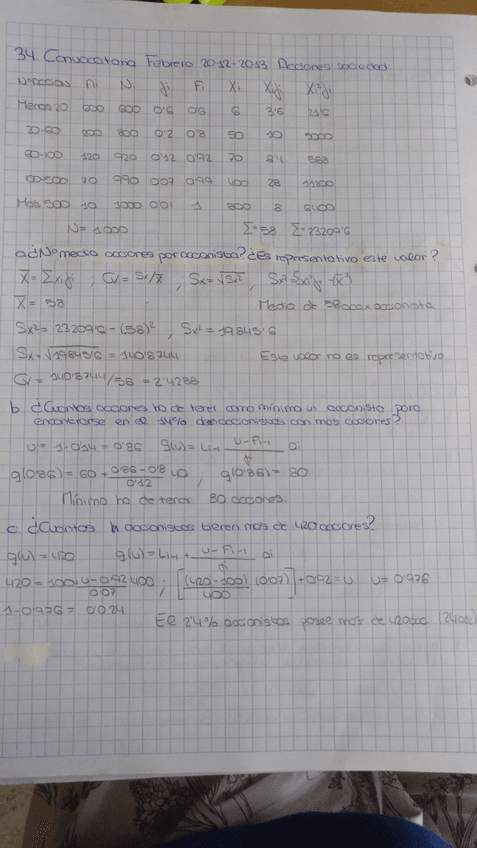 34. Convocatoria Febrero 2012-2013 Acciones sociedad.
Nºacciones ni Ni fi Fi Xi Xifi Xi²fi
Menos 20 600 600 0'6 0'6 6 3'6 21'6
20-60 200 800 0'2 0'8 50 10 5000
60-100 120 920 0'12 0'92 70 8'4 588
100-500 70 990 0'07 0'99 400 28 11200
Mas 500 10 1000 0'01 1 800 8 6400
N= 1000 Σ=58 Σ=23209'6
a) ¿Nº medio acciones por accionista? ¿Es representativo este valor?
X̄ = Σxifi ; CV = Sx/x̄ , Sx=√Sx² , Sx²=Σxi²fi-(x̄²)
X̄ = 58 Media de 58000 x accionista
Sx² = 23209'6 - (58)² , Sx² = 19845'6
Sx = √19845'6 = 140'8744 Este valor no es representativo
CV = 140'8744/58 = 2'4288
b. ¿Cuantas acciones ha de tener como mínimo un accionista para
encontrarse en el 14% de accionistas con mas acciones?
u = 1-0'14 = 0'86 g(u) = Li-1 u-Fi-1 ai
fi
g(0'86) = 60 + 0'86-0'8 40 , g(0'86) = 80
0'12
Mínimo ha de tener 80 acciones.
c. ¿Cuantos accionistas tienen mas de 420 acciones?
g(u) = 420 g(u) = Li-1 + u-Fi-1 ai
fi
420 = 100 + u-0'92 400 ; [(420-100) (0'07)] + 0'92 = u u = 0'976
0'07 400
1-0'976 = 0'024
El 2'4% accionistas posee mas de 420000